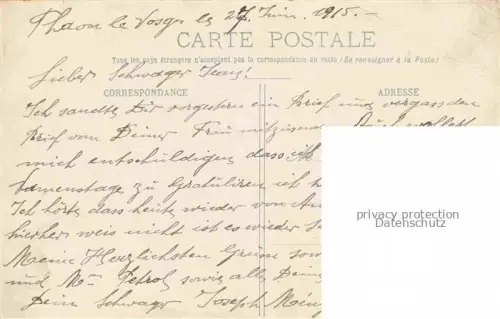 Thaon le Vosges le 27. Juin. 1915.-
CARTE POSTALE
Tous les pays étrangers n'acceptent pas la correspondance au recto (Se renseigner à la Poste)
Lieber Schwager Jean!
CORRESPONDANCE
ADRESSE
Ich sandte Dir vorgestern ein Brief und vergass den
Brief vom Deiner Frau
mich entschuldigen dass ich
Namenstage zu Gratuliren ich h
Ich hörte dass heute wieder von
hierher weis nicht ist es wieder
Meine Herzlichsten Grüsse sow
und Mme Petrol sowie alle Deine
Dein Schwager Joseph
privacy protection
Datenschutz